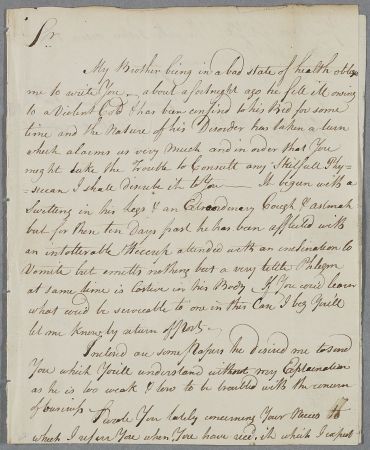 Sr.
My Brother being in a bad state of health obliges
me to write You about a fortnight ago he fell ill owing
to a Violent Cold & has been confin'd to his Bed for some
time and the Nature of his Disorder has taken a turn
which alarms us very much and in order that You
might take the Trouble to Consult any Skilfull Phy=
=sician I shall discribe it to You — It begun with a
Swelling in his Legs & an Extraordinary Cough & asthmah
but for then ten Days past he has ben afflicted with
an intollerable Heccup attended with an enclination to
Vomite but emitts nothing but a very little Phlegm
at same time is Costive in his Body. If You cou'd learn
what wou'd be serviceable to one in this Case I beg You'll
let me know by return of Post.
Inclosed are some Papers he desired me to send
You which You'll understand without my Explaination
as he is too weak & low to be troubled with the concern
of business I wrote You lately concerning Your Neices
which I refer You when You have recd. it which I expect